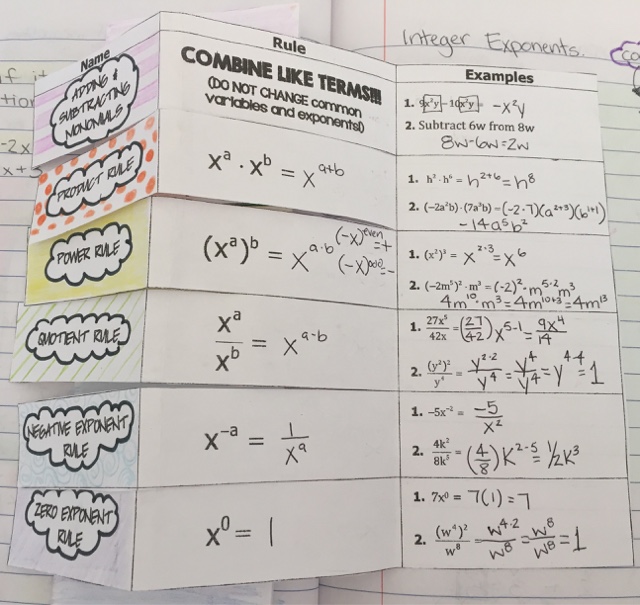 Integer Exponents.
Name
Rule
Examples
ADDING &
SUBTRACTING
MONOMIALS
COMBINE LIKE TERMS!!!
(DO NOT CHANGE common
variables and exponents!)
1. 9x²y - 10x²y = -x²y
2. Subtract 6w from 8w
8w-6w=2w
PRODUCT RULE
xᵃ · xᵇ = xᵃ⁺ᵇ
1. h² · h⁶ = h²⁺⁶ = h⁸
2. (-2a²b) · (7a³b) = (-2·7)(a²⁺³)(b¹⁺¹)
-14a⁵b²
POWER RULE
(xᵃ)ᵇ = x^(a·b)
(-x)^even = +
(-x)^odd = -
1. (x²)³ = x^(2·3) = x⁶
2. (-2m⁵)² · m³ = (-2)² · m^(5·2) m³
4m¹⁰ · m³ = 4m¹⁰⁺³ = 4m¹³
QUOTIENT RULE
xᵃ/xᵇ = xᵃ⁻ᵇ
1. 27x⁵/42x = (27/42) x⁵⁻¹ = 9x⁴/14
2. (y²)²/y⁴ = y^(2·2)/y⁴ = y⁴/y⁴ = y⁴⁻⁴ = 1
NEGATIVE EXPONENT
RULE
x⁻ᵃ = 1/xᵃ
1. -5x⁻² = -5/x²
2. 4k²/8k⁵ = (4/8) K²⁻⁵ = 1/2K³
ZERO EXPONENT
RULE
x⁰ = 1
1. 7x⁰ = 7(1) = 7
2. (w⁴)²/w⁸ = w^(4·2)/w⁸ = w⁸/w⁸ = 1